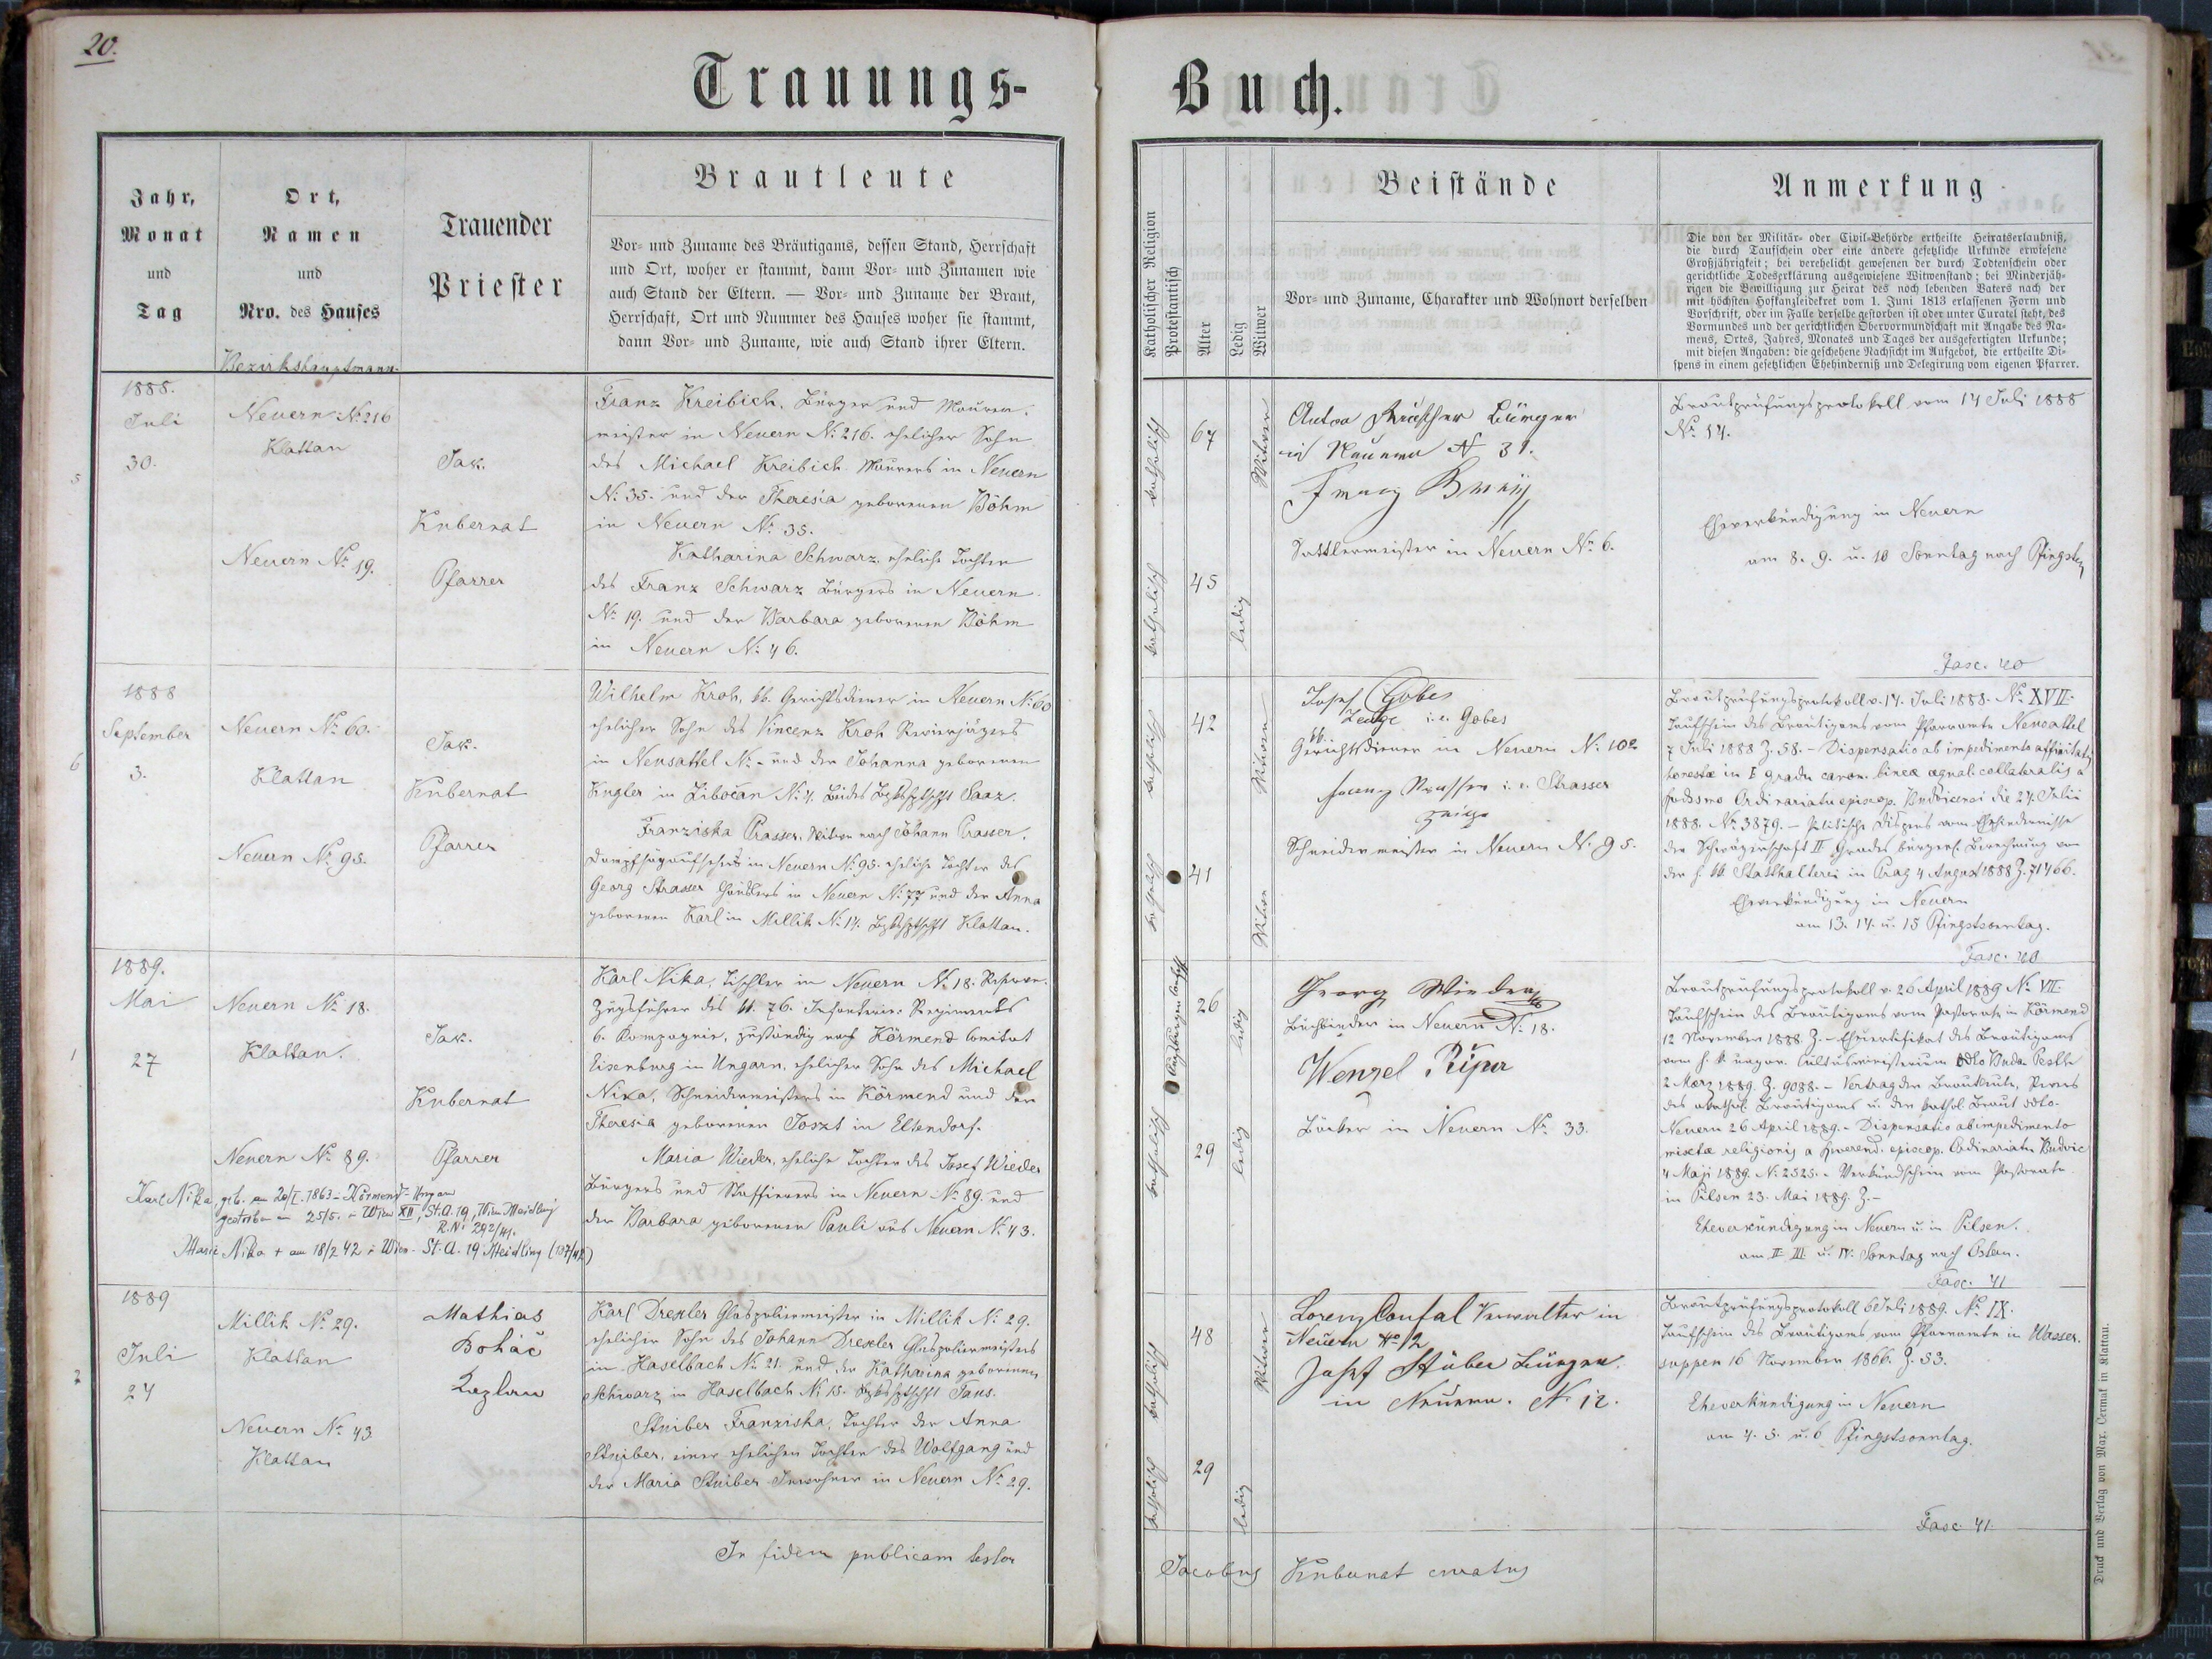 20.
Trauungs-
Jahr,
Monat
und
Tag
Ort,
Namen
und
Nro. des Hauses
Bezirkshauptmann-
Trauender
Priester
Brautleute
Vor- und Zuname des Bräutigams, dessen Stand, Herrschaft
und Ort, woher er stammt, dann Vor- und Zunamen wie
auch Stand der Eltern. — Vor- und Zuname der Braut,
Herrschaft, Ort und Nummer des Hauses woher sie stammt,
dann Vor- und Zuname, wie auch Stand ihrer Eltern.
5
1888.
Juli
30.
Neuern No 216
Klattau
Neuern No 19.
Jak.
Kubernat
Pfarrer
Franz Kreibich, Bürger und Maurer-
meister in Neuern No 216. ehelicher Sohn
des Michael Kreibich Maurers in Neuern
No 35. und der Theresia geborenen Böhm
in Neuern No 35.
Katharina Schwarz, eheliche Tochter
des Franz Schwarz Bürgers in Neuern
No 19. und der Barbara geborenen Böhm
in Neuern No 46.
6
1888
September
3.
Neuern No 60.
Klattau
Neuern No 95.
Jak.
Kubernat
Pfarrer
Wilhelm Kroh, kk. Gerichtsdiener in Neuern No 60
ehelicher Sohn des Vincenz Kroh Revierjägers
in Neusattel No - und der Johanna geborenen
Kugler in Libočan No 4. beides Saaz.
Franziska Prasser, Witwe nach Johann Prasser,
in Neuern No 95. eheliche Tochter des
Georg Strasser in Neuern No 77 und der Anna
geborenen Karl in Millik No 14. Klattau.
1
1889.
Mai
27
Neuern No 18.
Klattau.
Neuern No 89.
Jak.
Kubernat
Pfarrer
Karl Nika, Tischler in Neuern No 18. Reserve-
Zugsführer des k. 76. Infanterie-Regiments
6. Kompagnie, zuständig nach Körmend Comitat
Eisenburg in Ungarn, ehelicher Sohn des Michael
Nika, Schneidermeisters in Körmend und der
Theresia geborenen Joszt in Eltendorf.
Maria Wieder, eheliche Tochter des Josef Wieder
Bürgers und Staffierers in Neuern No 89. und
der Barbara geborenen Pauli aus Neuern No 43.
Karl Nika geb. am 20/I. 1863 - Körmend - Ungarn
gestorben am 25/5. in Wien XII, St.A. 19, Wien Meidling
R.N. 292/41.
Marie Nika + am 18/2 42 in Wien - St.A. 19 Meidling (137/42)
2
1889
Juli
24
Millik No 29.
Klattau
Neuern No 43
Klattau
Mathias
Boháč
Kaplan
Karl Drexler Glaspoliermeister in Millik No 29.
ehelicher Sohn des Johann Drexler Glaspoliermeisters
in Haselbach No 21. und der Katharina geborenen
Schwarz in Haselbach No 15. Taus.
Stuiber Franziska, Tochter der Anna
Stuiber, einer ehelichen Tochter des Wolfgang und
der Maria Stuiber Inwohner in Neuern No 29.
In fidem publicam testor
Buch.
Katholischer Religion
Protestantisch
Alter
Ledig
Witwer
Beistände
Vor- und Zuname, Charakter und Wohnort derselben
Anmerkung
Die von der Militär- oder Civil-Behörde ertheilte Heiratserlaubniß,
die durch Taufschein oder eine andere gesetzliche Urkunde erwiesene
Großjährigkeit; bei verehelicht gewesenen der durch Todtenschein oder
gerichtliche Todeserklärung ausgewiesene Witwenstand; bei Minderjäh-
rigen die Bewilligung zur Heirat des noch lebenden Vaters nach der
mit höchsten Hofkanzleidekret vom 1. Juni 1813 erlassenen Form und
Vorschrift, oder im Falle derselbe gestorben ist oder unter Curatel steht, des
Vormundes und der gerichtlichen Obervormundschaft mit Angabe des Na-
mens, Ortes, Jahres, Monates und Tages der ausgefertigten Urkunde;
mit diesen Angaben: die geschehene Nachsicht im Aufgebot, die ertheilte Di-
spens in einem gesetzlichen Ehehinderniß und Delegirung vom eigenen Pfarrer.
katholisch
67
Witwer
katholisch
45
ledig
Anton Bürger
in Neuern No 31.
Franz
Sattlermeister in Neuern No 6.
Brautprüfungsprotokoll vom 14 Juli 1888
No 14.
Eheverkündigung in Neuern
am 8. 9. u. 10 Sonntag nach Pfingsten
Fasc. 40
katholisch
42
Witwer
katholisch
41
Witwe
Josef Gobes
Zeuge i.e. Gobes
kk. Gerichtsdiener in Neuern No 102
Franz Strasser i.e. Strasser
Zeuge
Schneidermeister in Neuern No 95.
Brautprüfungsprotokoll v. 14. Juli 1888. No XVII.
Taufschein des Bräutigams vom Pfarramte Neusattel
7 Juli 1888 Z. 58. - Dispensatio ab impedimento affinitatis
honestæ in I gradu canon. lineæ æqual. collateralis a
Ordinariatu episcop. Budvicensi die 27. Julii
1888. No 3879. - Politische Dispens vom Ehehindernisse
der Schwägerschaft II Grades bürgerl. Berechnung von
der h. kk Statthalterei in Prag 4 August 1888 Z. 71466.
Eheverkündigung in Neuern
am 13. 14. u. 15 Pfingstsonntag.
Fasc. 40
26
ledig
katholisch
29
ledig
Georg Wieder
Buchbinder in Neuern No 18.
Wenzel
Bäcker in Neuern No 33.
Brautprüfungsprotokoll v. 26 April 1889 No VII.
Taufschein des Bräutigams vom Pastorate in Körmend
12 November 1888. Z. - Ehezertifikat des Bräutigams
vom h. k ungar. Cultusministerium ddto Buda Pesth
2 März 1889. Z. 9088. - Vertrag der Brautleute, Revers
des akathol. Bräutigams u. der kathol. Braut ddto.
Neuern 26 April 1889. - Dispensatio ab impedimento
mixtæ religionis a reverend. episcop. Ordinariatu Budvic
4 Maji 1889. No 2525. - Verkündschein vom Pastorate
in Pilsen 23. Mai 1889. Z. -
Eheverkündigung in Neuern u. in Pilsen.
am II. III. u. IV. Sonntag nach Ostern.
Fasc. 41
katholisch
48
Witwer
katholisch
29
ledig
Lorenz Verwalter in
Neuern No 12
Josef Stuiber Bürger
in Neuern. No 12.
Brautprüfungsprotokoll 6 Juli 1889. No IX.
Taufschein des Bräutigams vom Pfarramte in Wasser-
suppen 16 November 1866. Z. 53.
Eheverkündigung in Neuern
am 4. 5. u. 6 Pfingstsonntag.
Fasc. 41.
Jacobus Kubernat curatus
Druck und Verlag von Max. Čermak in Klattau.